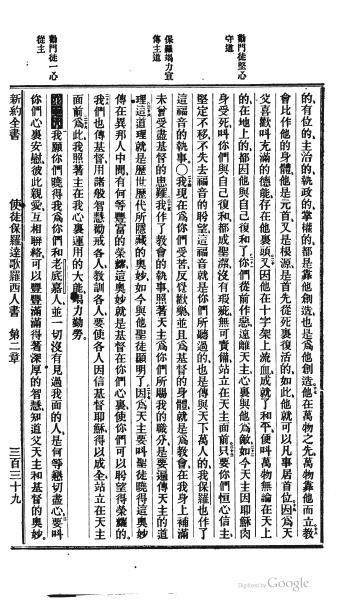 勸門徒堅心
守道
保羅竭力宣
傳主道
勸門徒一心
從主
的有位的主治的執政的掌權的都是靠他創造也是爲他創造他在萬物之先萬物靠他而立教
會比作他的身體他是元首又是根源是首先從死裏復活的如此他就可以凡事居首位因爲天
父喜歡叫充滿的德能存在他裏頭又因他在十字架上流血成就了和平便叫萬物無論在天上
的在地上的都因他與自己復和了你們從前作惡遠離天主心裏與他爲敵如今天主因耶穌肉
身受死叫你們與自己復和都成聖潔沒有瑕疵無可責備站立在天主面前只要你們恆心信主
堅定不移不失去福音的盼望這福音就是你們所聽過的也是傳與天下萬人的我保羅也作了
這福音的執事〇我現在爲你們受苦反覺歡樂並且爲基督的身體就是爲教會在我身上補滿
未曾受盡基督的患難我作了教會的執事照着天主爲你們所賜我的職分是要遍傳天主的道
理這道理就是歷世歷代所隱藏的奧妙如今與他聖徒顯明了因爲天主要叫聖徒曉得這奧妙
傳在異邦人中間有何等豐富的榮耀這奧妙就是基督在你們心裏使你們可以盼望得榮耀的
我們也傳基督用諸般智慧勸戒各人教訓各人要使各人因信基督耶穌得以成全站立在天主
面前爲此我照着主在我心裏運用的大能竭力勤勞
第二章我願你們曉得我爲你們和老底嘉人並一切沒有見過我面的人是何等懸切盡心要叫
你們心裏安慰彼此親愛互相聯絡可以豐豐滿滿得着深厚的智慧知道父天主和基督的奧妙
新約全書 使徒保羅達歌羅西人書 第二章 三百三十九
Digitized by Google